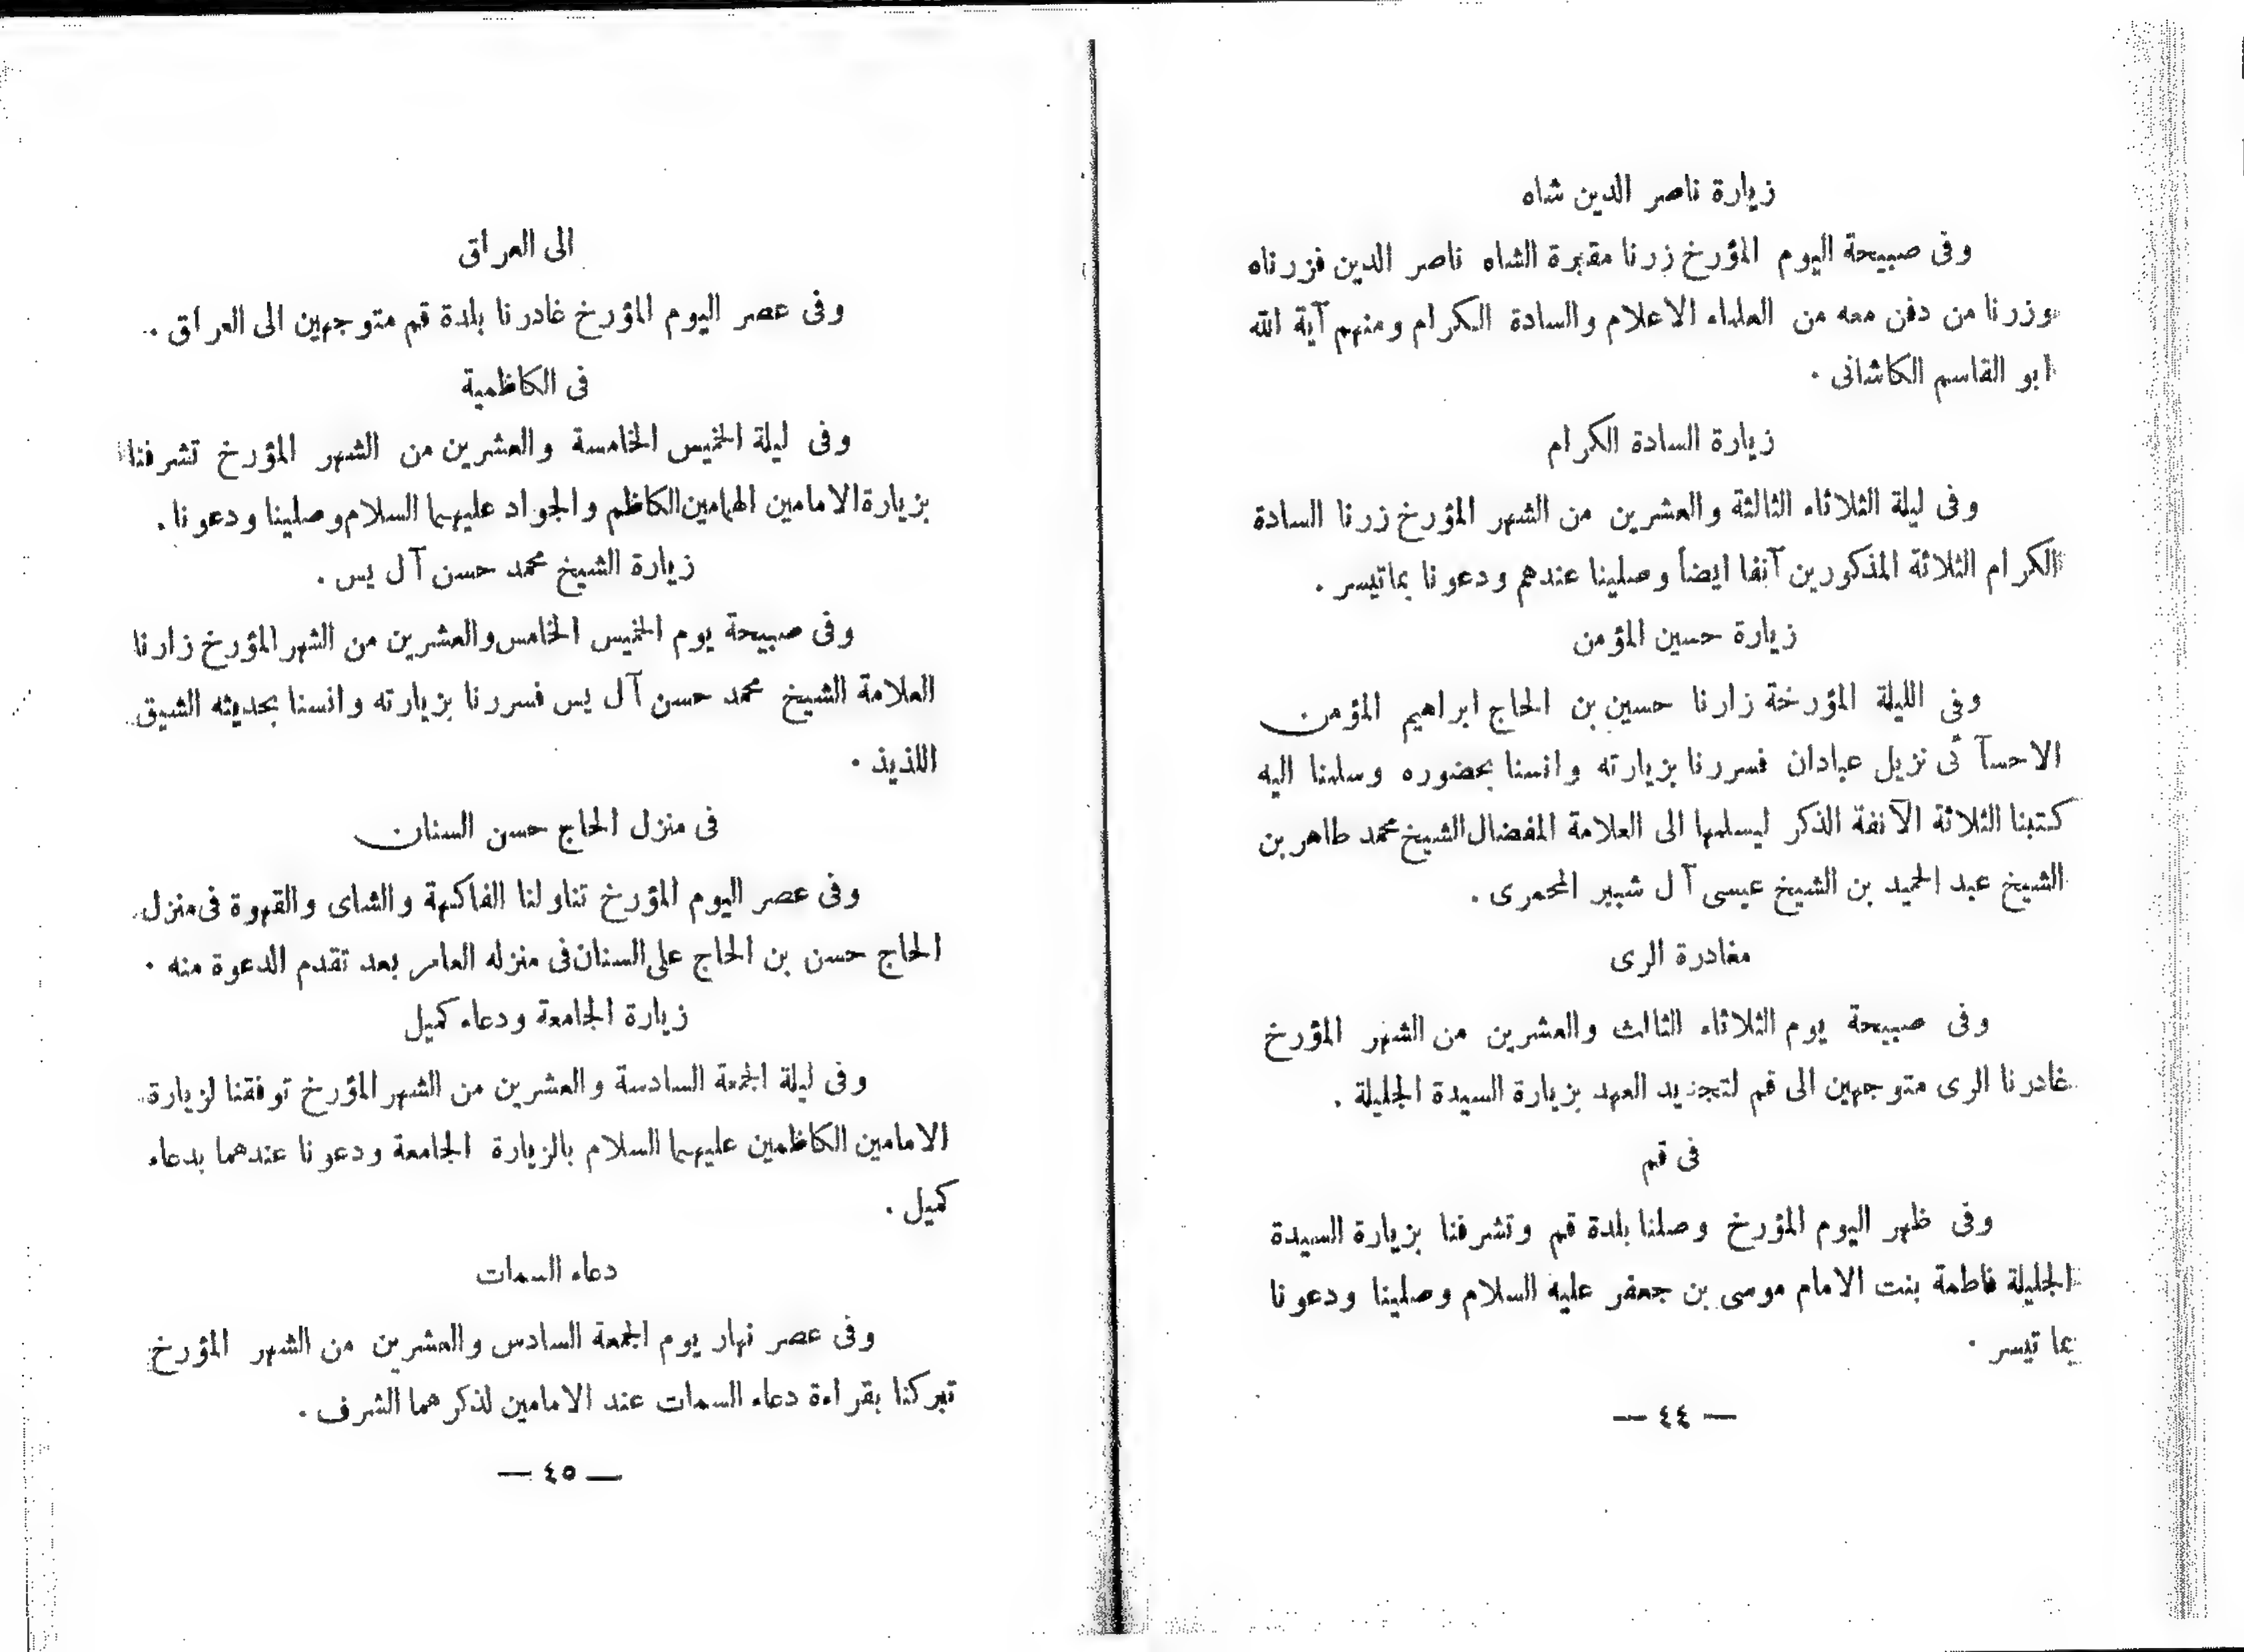 زيارة ناصر الدين شاه
وفى صبيحة اليوم المؤرخ زرنا مقبرة الشاه ناصر الدين فزرناه
وزرنا من دفن معه من العلماء الاعلام والسادة الكرام ومنهم آية الله
ابو القاسم الكاشانى .
زيارة السادة الكرام
وفى ليلة الثلاثاء الثالثة والعشرين من الشهر المؤرخ زرنا السادة
الكرام الثلاثة المذكورين آنفا ايضاً وصلينا عندهم ودعونا بماتيسر .
زيارة حسين المؤمن
وفى الليلة المؤرخة زارنا حسين بن الحاج ابراهيم المؤمن
الاحسآئى نزيل عبادان فسررنا بزيارته وانسنا بحضوره وسلمنا اليه
كتبنا الثلاثة الآنفة الذكر ليسلمها الى العلامة المفضال الشيخ محمد طاهر بن
الشيخ عبد الحميد بن الشيخ عيسى آل شبير المحمرى .
مغادرة الرى
وفى صبيحة يوم الثلاثاء الثالث والعشرين من الشهر المؤرخ
غادرنا الرى متوجهين الى قم لتجديد العهد بزيارة السيدة الجليلة .
فى قم
وفى ظهر اليوم المؤرخ وصلنا بلدة قم وتشرفنا بزيارة السيدة
الجليلة فاطمة بنت الامام موسى بن جعفر عليه السلام وصلينا ودعونا
بما تيسر .
— ٤٤ —
الى العراق
وفى عصر اليوم المؤرخ غادرنا بلدة قم متوجهين الى العراق .
فى الكاظمية
وفى ليلة الخميس الخامسة والعشرين من الشهر المؤرخ تشرفنا
بزيارة الامامين الهمامين الكاظم والجواد عليهما السلام وصلينا ودعونا .
زيارة الشيخ محمد حسن آل يس .
وفى صبيحة يوم الخميس الخامس والعشرين من الشهر المؤرخ زارنا
العلامة الشيخ محمد حسن آل يس فسررنا بزيارته وانسنا بحديثه الشيق
اللذيذ .
فى منزل الحاج حسن السنان
وفى عصر اليوم المؤرخ تناولنا الفاكهة والشاى والقهوة فى منزل
الحاج حسن بن الحاج على السنان فى منزله العامر بعد تقدم الدعوة منه .
زيارة الجامعة ودعاء كميل
وفى ليلة الجمعة السادسة والعشرين من الشهر المؤرخ توفقنا لزيارة
الامامين الكاظمين عليهما السلام بالزيارة الجامعة ودعونا عندهما بدعاء
كميل .
دعاء السمات
وفى عصر نهار يوم الجمعة السادس والعشرين من الشهر المؤرخ
تبركنا بقراءة دعاء السمات عند الامامين لذكرهما الشرف .
— ٤٥ —